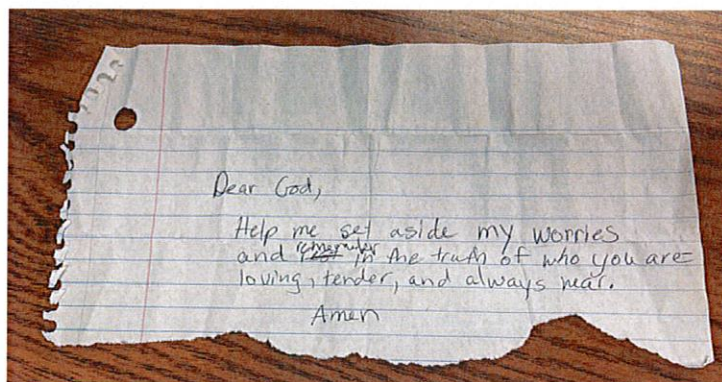 Dear God,
Help me set aside my worries
and remember in the truth of who you are=
loving, tender, and always near.
Amen